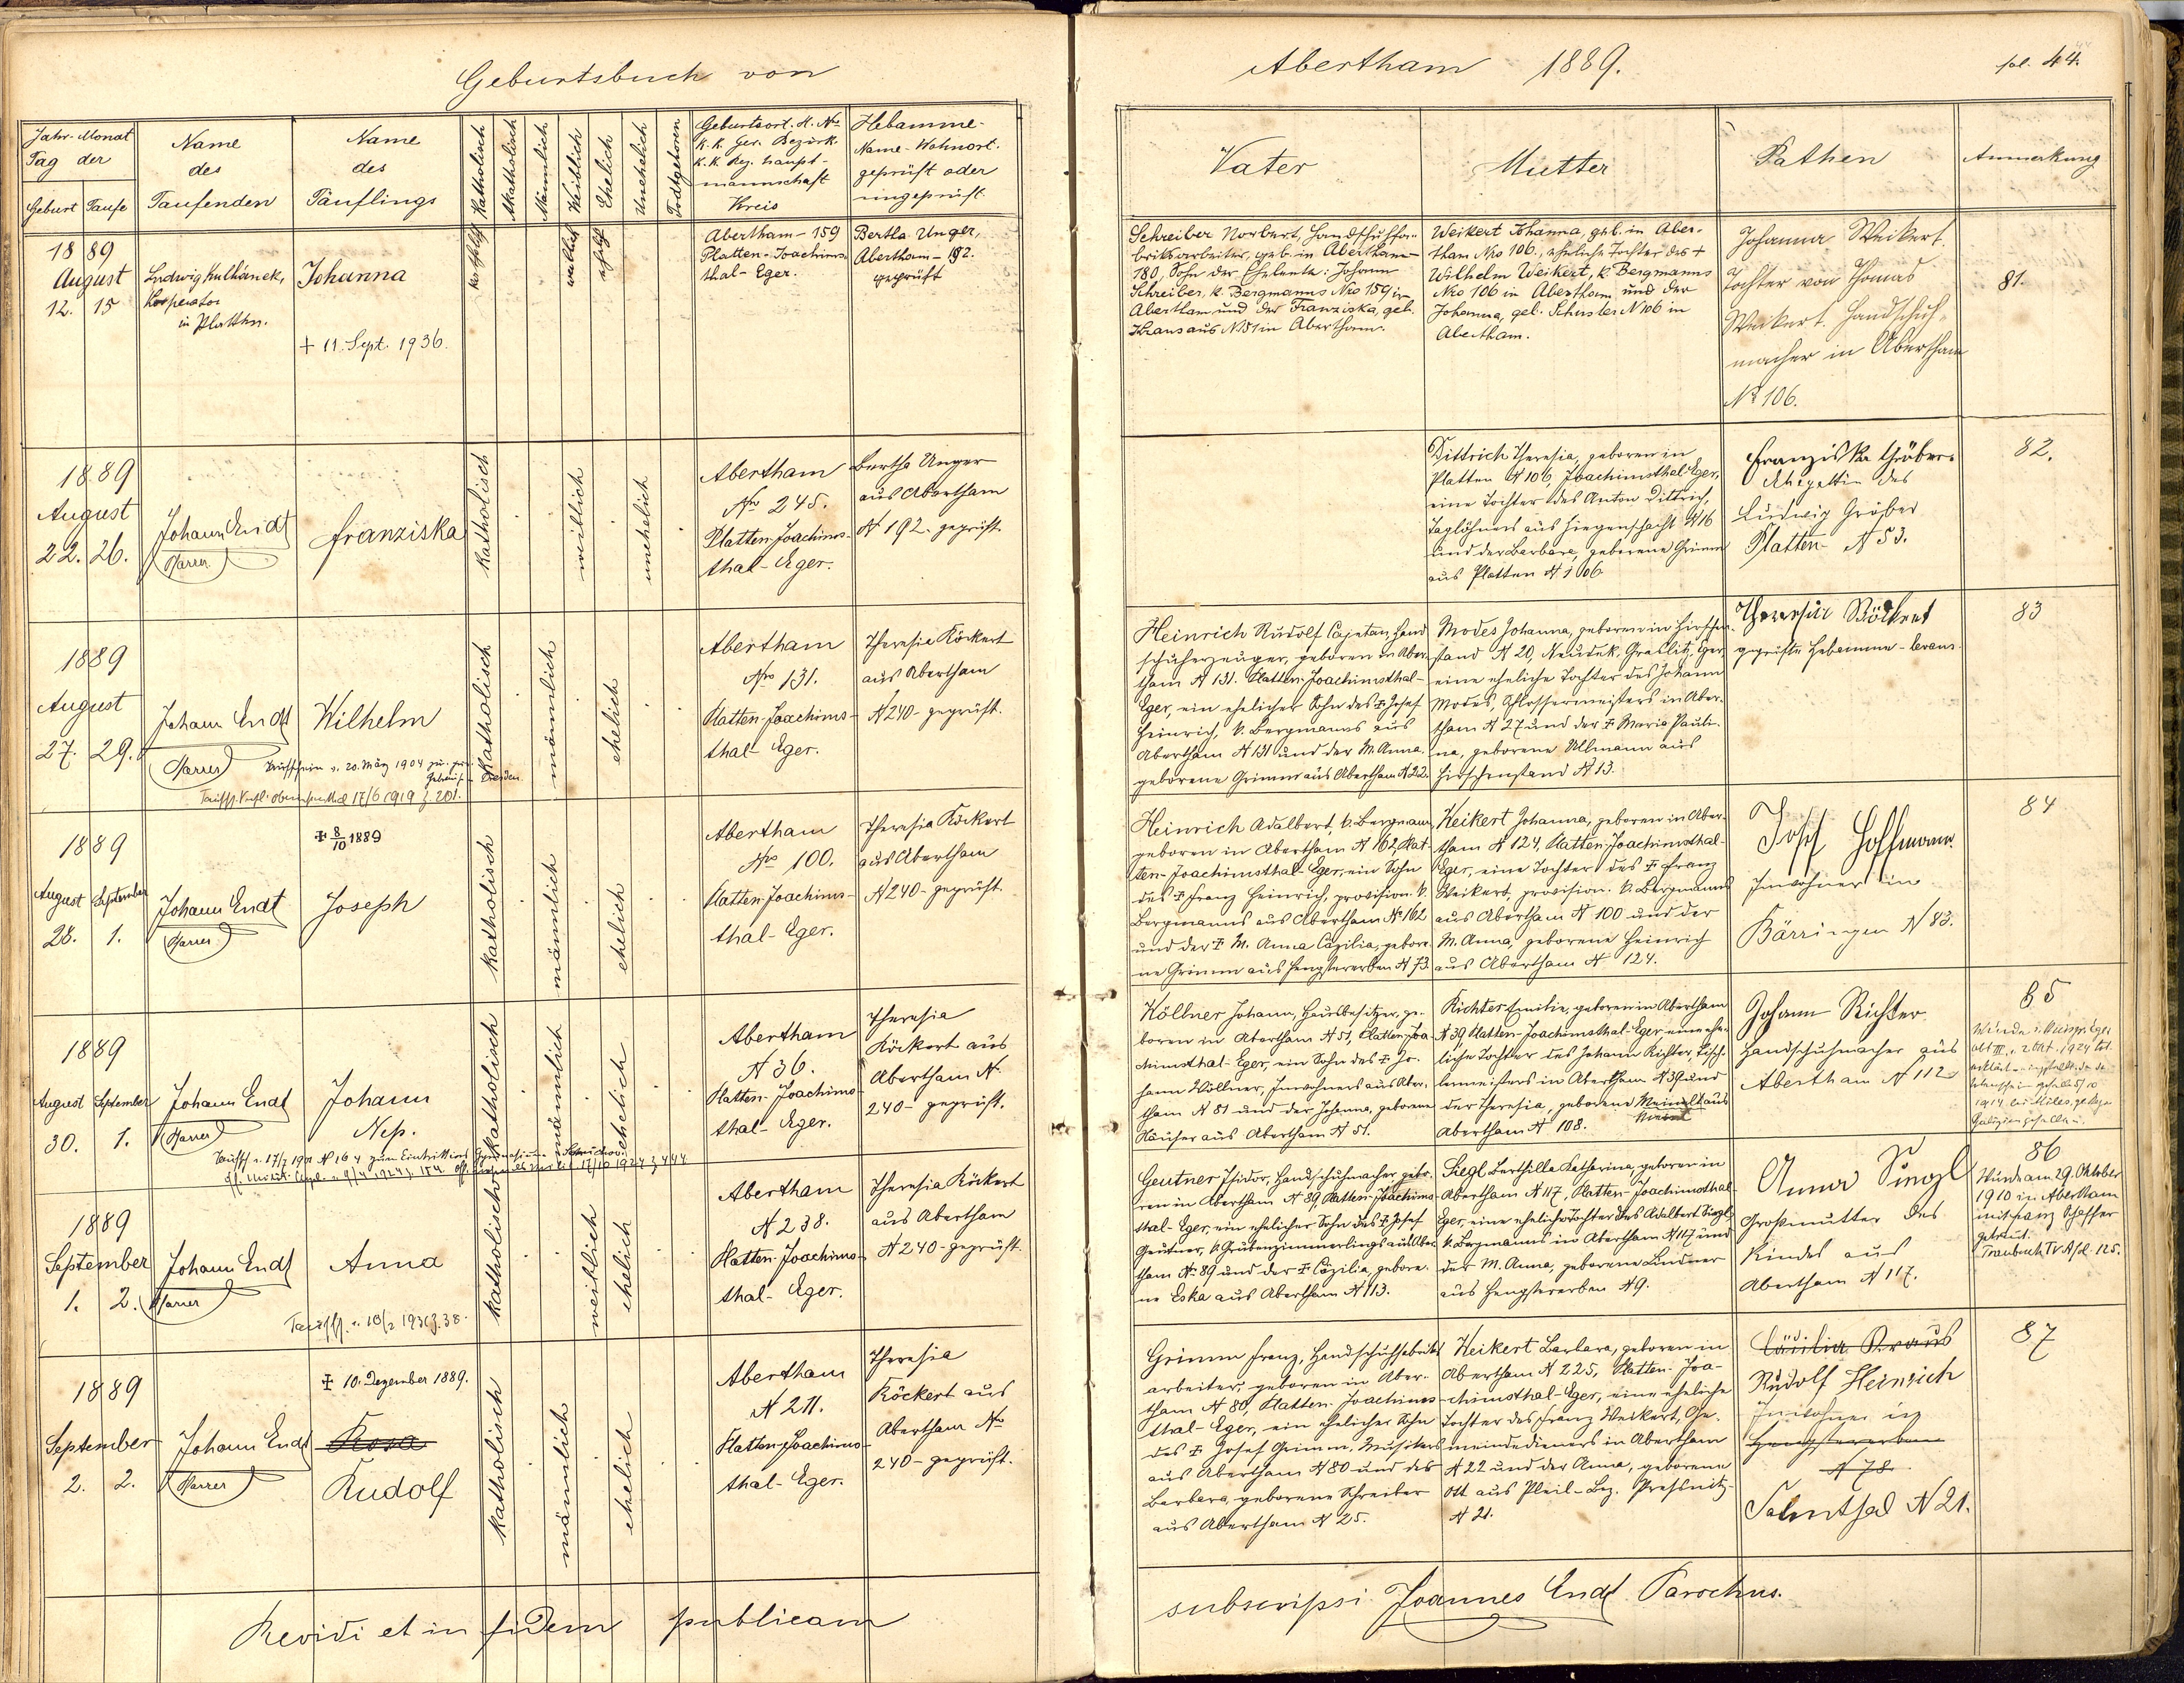 Geburtsbuch von
Abertham 1889.
fol. 44.
Jahr-Monat
Tag der
Geburt Taufe
Name
des
Taufenden
Name
des
Täuflings
Katholisch
Akatholisch
Männlich
Weiblich
Ehelich
Unehelich
Todtgeboren
Geburtsort. H. No
K. K. Ger. Bezirk
K. K. Bez. Haupt-
mannschaft
Kreis
Hebamme-
Name-Wohnort.
geprüft oder
ungeprüft.
Vater
Mutter
Pathen
Anmerkung
1889
August
12. 15
Ludwig Kulhánek,
Kooperator
in Platten.
Johanna
+ 11. Sept. 1936.
katholisch
weiblich
ehelich
Abertham-159
Platten-Joachims-
thal-Eger.
Bertha Unger,
Abertham-192.
geprüft
Schreiber Norbert, Handschuhfa-
briksarbeiter, geb. in Abertham
180, Sohn der Eheleute: Johann
Schreiber, k. Bergmanns Nro 159 in
Abertham und der Franziska, geb.
Kraus aus N. 51 in Abertham.
Weikert Johanna, geb. in Aber-
tham Nro 106., eheliche Tochter des +
Wilhelm Weikert, k. Bergmanns
Nro 106 in Abertham und der
Johanna, geb. Schuster N 106 in
Abertham.
Johanna Weikert.
Tochter von Thomas
Weikert. Handschuh-
macher in Abertham
No 106.
81.
1889
August
22. 26.
Johann Endt
Pfarrer
Franziska
katholisch
weiblich
unehelich
Abertham
Nro 245.
Platten-Joachims-
thal-Eger.
Bertha Unger
aus Abertham
N 192-geprüft.
Dittrich Theresia, geboren in
Platten N 106, Joachimsthal-Eger,
eine Tochter des Anton Dittrich,
Taglöhners aus Ziegenschacht N 16
und der Barbara, geborene Grimm
aus Platten N 106
Franziska Gröber
Ehegattin des
Ludwig Gröber
Platten N 53.
82.
1889
August
27. 29.
Johann Endt
Pfarrer
Wilhelm
Taufschein v. 20. März 1904
Dresden
17/6 1919 Z. 201.
katholisch
männlich
ehelich
Abertham
Nro 131.
Platten-Joachims-
thal-Eger.
Theresia Köckert
aus Abertham
N 240-geprüft.
Heinrich Rudolf Cajetan, Hand-
schuherzeuger, geboren in Aber-
tham N 131. Platten-Joachimsthal-
Eger, ein ehelicher Sohn des + Josef
Heinrich, k. Bergmanns aus
Abertham N 131 und der M. Anna,
geborene Grimm aus Abertham N 22.
Modes Johanna, geboren in Hirschen-
stand N 20, Neudek, Graslitz, Eger,
eine eheliche Tochter des Johann
Modes, Schlossermeisters in Aber-
tham N 27 und der + Maria Pauli-
na, geborene Ullmann aus
Hirschenstand N 13.
Theresia Köckert
geprüfte Hebamme
83
1889
August September
28. 1.
Johann Endt
Pfarrer
+ 8/10 1889
Joseph
katholisch
männlich
ehelich
Abertham
Nro 100.
Platten-Joachims-
thal-Eger.
Theresia Köckert
aus Abertham
N 240-geprüft.
Heinrich Adalbert, k. Bergmann,
geboren in Abertham N 162, Plat-
ten-Joachimsthal-Eger, ein Sohn
des + Franz Heinrich, provision. k.
Bergmanns aus Abertham No 162
und der + M. Anna Cäzilia, gebore-
ne Grimm aus Hengstererben N 73.
Weikert Johanna, geboren in Aber-
tham N 124, Platten-Joachimsthal-
Eger, eine Tochter des + Franz
Weikert, provision. k. Bergmanns
aus Abertham N 100 und der
M. Anna, geborene Heinrich
aus Abertham N 124.
Josef Hoffmann.
Inwohner in
Bärringen N 83.
84
1889
August September
30. 1.
Johann Endt
Pfarrer
Johann
Nep.
katholisch
männlich
ehelich
Abertham
N 36.
Platten-Joachims-
thal-Eger.
Theresia
Köckert aus
Abertham N
240-geprüft.
Köllner Johann, Hausbesitzer, ge-
boren in Abertham N 51, Platten-Joa-
chimsthal-Eger, ein Sohn des + Jo-
hann Köllner, Inwohners aus Aber-
tham N 81 und der Johanna, geborene
Häuser aus Abertham N 51.
Richter Emilie, geboren in Abertham
N 39, Platten-Joachimsthal-Eger, eine ehe-
liche Tochter des Johann Richter, Tisch-
lermeisters in Abertham N 39 und
der Theresia, geborene Meinelt aus
Abertham N 108.
Johann Richter
Handschuhmacher aus
Abertham N 112
85
1889
September
1. 2.
Johann Endt
Pfarrer
Anna
katholisch
weiblich
ehelich
Abertham
N 238.
Platten-Joachims-
thal-Eger.
Theresia Köckert
aus Abertham
N 240-geprüft.
Geutner Isidor, Handschuhmacher, gebo-
ren in Abertham N 89, Platten-Joachims-
thal-Eger, ein ehelicher Sohn des + Josef
Geutner, k. Grubenzimmerlings aus Aber-
tham N 89 und der + Cäzilia, gebore-
ne Eska aus Abertham N 113.
Siegl Berthilla Katharina, geboren in
Abertham N 117, Platten-Joachimsthal-
Eger, eine eheliche Tochter des Adalbert Siegl,
k. Bergmanns in Abertham N 117 und
der M. Anna, geborene Lindner
aus Hengstererben N 9.
Anna Siegl
Großmutter des
Kindes aus
Abertham N 117.
86
Wurde am 29. Oktober
1910 in Abertham
mit Franz Schaffer
getraut.
1889
September
2. 2.
Johann Endt
Pfarrer
+ 10. Dezember 1889.
Rosa
Rudolf
katholisch
männlich
ehelich
Abertham
N 211.
Platten-Joachims-
thal-Eger.
Theresia
Köckert aus
Abertham No
240-geprüft.
Grimm Franz, Handschuhfabriks-
arbeiter, geboren in Aber-
tham N 80, Platten-Joachims-
thal-Eger, ein ehelicher Sohn
des + Josef Grimm, Musikers
aus Abertham N 80 und der
Barbara, geborene Schreiber
aus Abertham N 25.
Weikert Barbara, geboren in
Abertham N 225, Platten-Joa-
chimsthal-Eger, eine eheliche
Tochter des Franz Weikert, Ge-
meindedieners in Abertham
N 22 und der Anna, geborene
Ott aus Pleil-Bez. Preßnitz-
N 21.
Cäcilia Kraus
Rudolf Heinrich
Inwohner in
Hengstererben
N 78.
Salmthal N 21.
87
Revidi et in fidem publicam
subscripsi Joannes Endt Parochus.